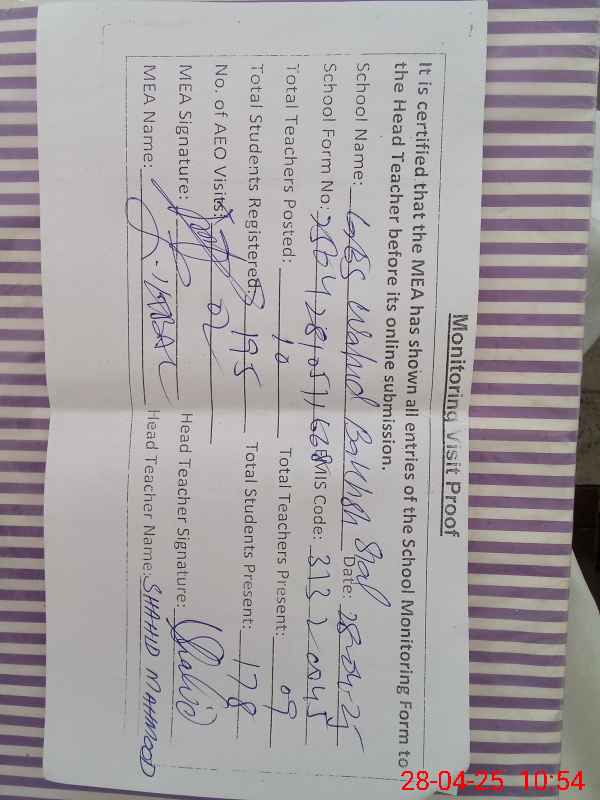 Monitoring Visit Proof
It is certified that the MEA has shown all entries of the School Monitoring Form to
the Head Teacher before its online submission.
School Name: Wahid Bakhsh Date: 28-04-25
School Form No: EMIS Code: 31320045
Total Teachers Posted: 10 Total Teachers Present: 09
Total Students Registered: 195 Total Students Present: 178
No. of AEO Visits: 02
MEA Signature: Head Teacher Signature: Shahid
MEA Name: IQBAL Head Teacher Name: SHAHID MAHMOOD
28-04-25 10:54